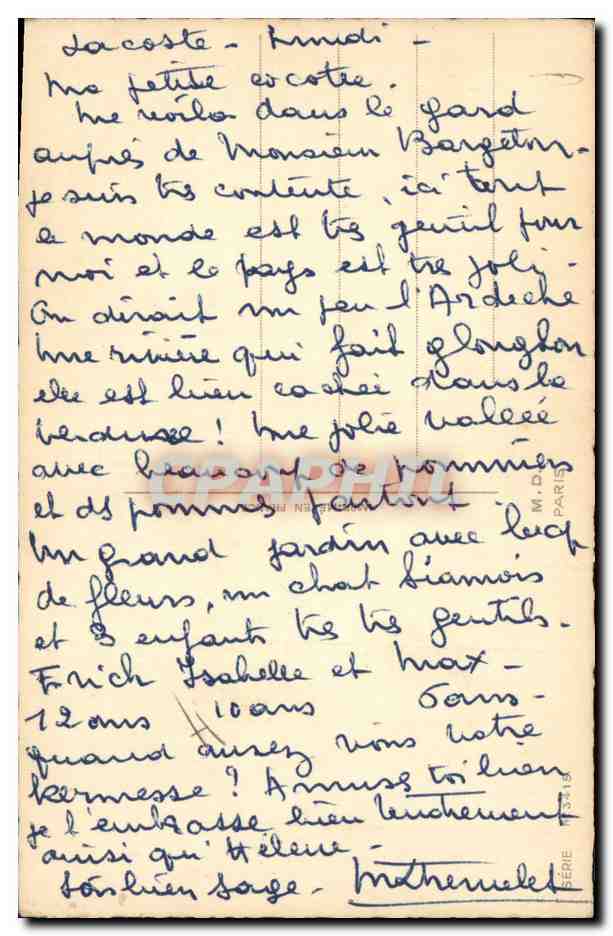 Lacoste - Lundi -
Ma petite cocotte.
Me voila dans le gard
auprès de Monsieur Bargeton -
je suis très contente, ici tout
le monde est très gentil pour
moi et le pays est très joli -
On dirait un peu l'Ardèche
Une rivière qui fait glonglon
elle est bien cachée dans la
verdure ! Une jolie vallée
avec beaucoup de pommiers
et ds pommes partout
Un grand jardin avec bcp
de fleurs, un chat Siamois
et 3 enfants très très gentils -
Erich Isabelle et Max -
12 ans 10 ans 6 ans -
quand aurez vous votre
kermesse ? Amuse toi bien
je t'embrasse bien tendrement
ainsi qu'Hélène -
Sois bien sage -
CPARHIT
M.D.
PARIS
SÉRIE